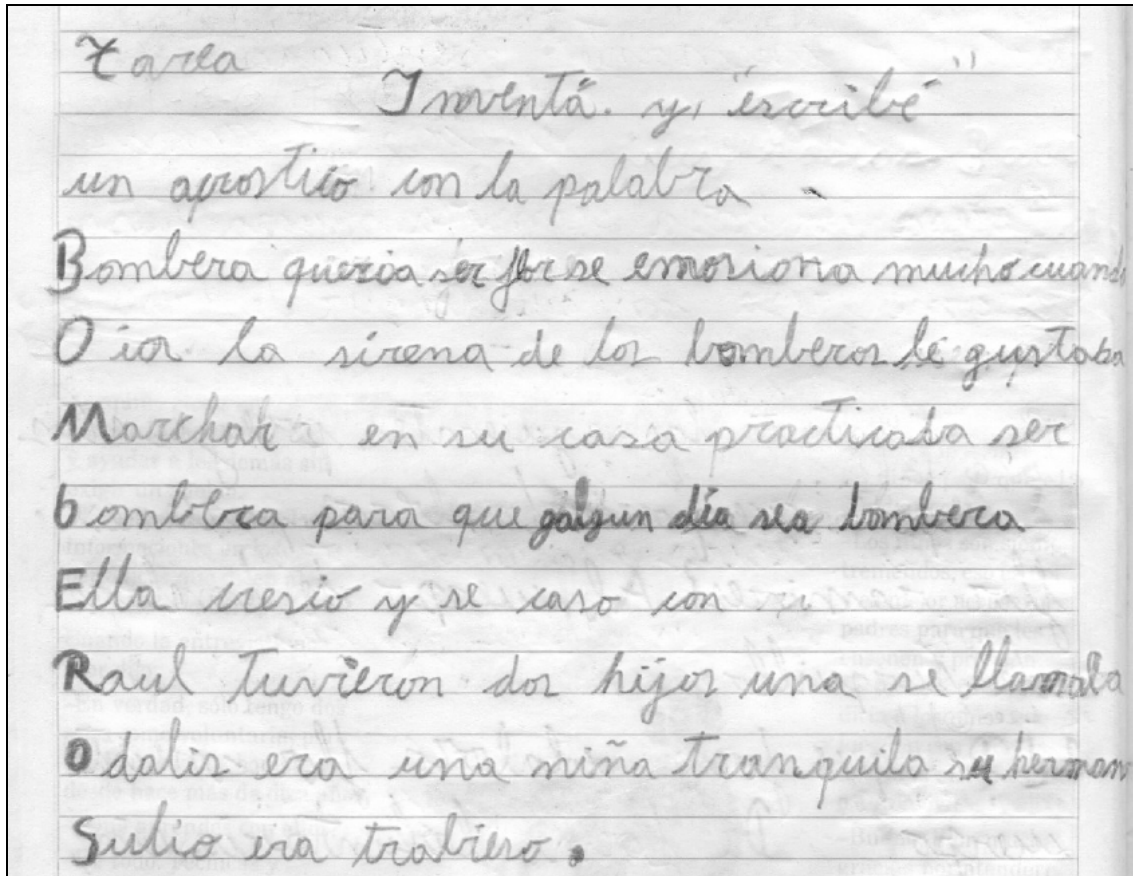 Tarea
Inventá. y, "escribé"
un acrostico con la palabra
Bombera queria ser se emosiona mucho cuando
Oia la sirena de los bomberos le gustaba
Marchar en su casa practicaba ser
bombera para que algun día sea bombera
Ella cresio y se caso con
Raul tuvieron dos hijos una se llamaba
Odalis era una niña tranquila su herman
Sulio era trabieso.